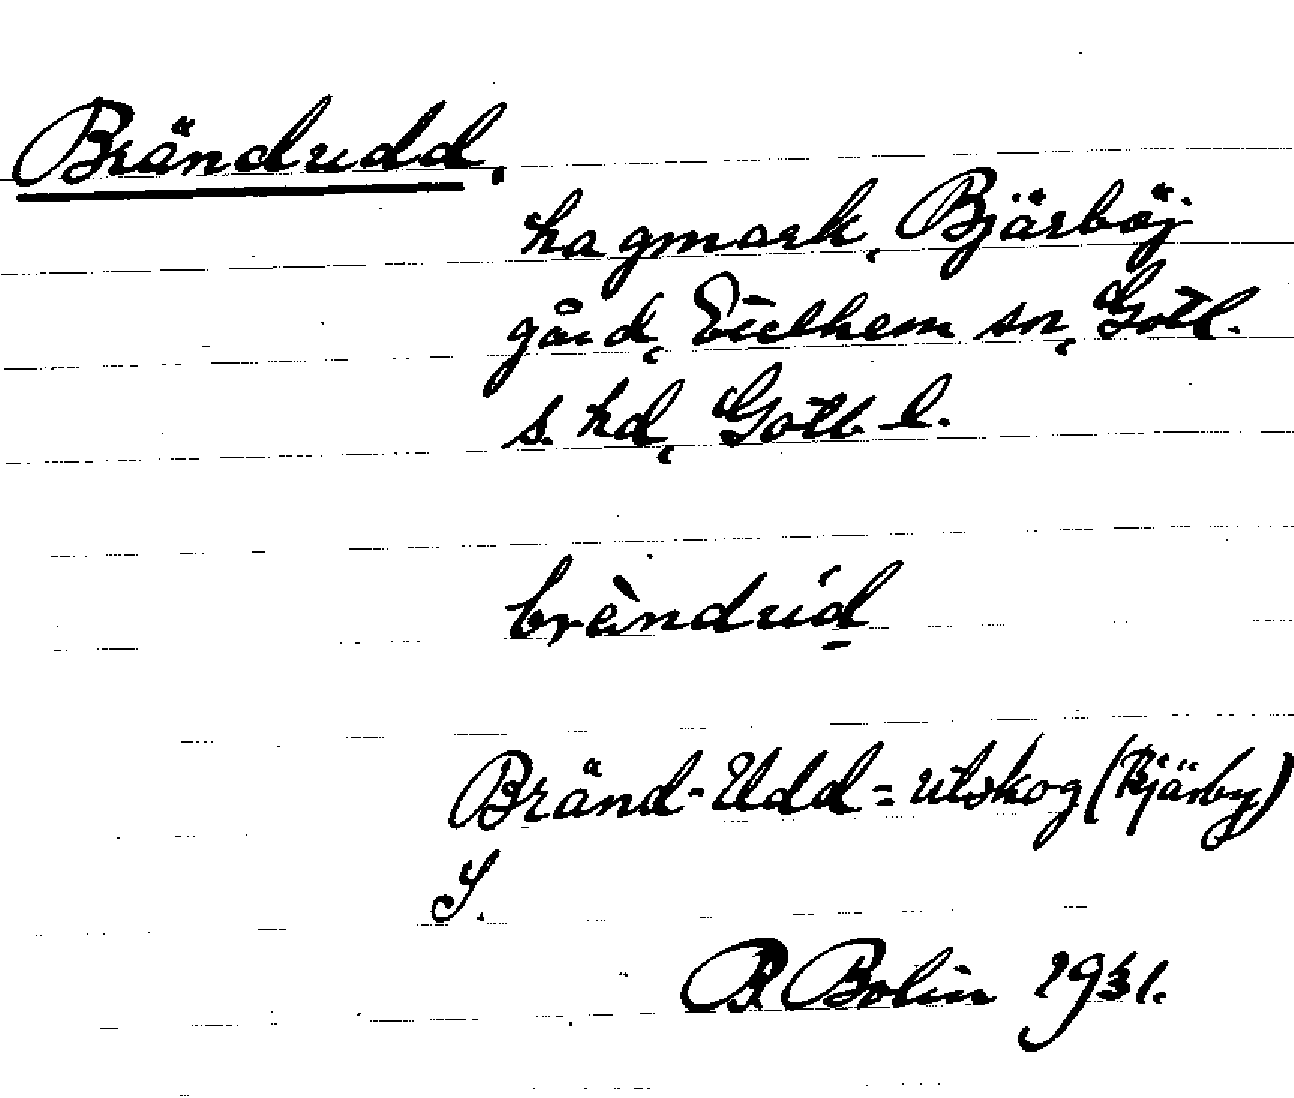 Brändudd,
hagmark, Bjärböj
gård, Eielhem sn, Gotl.
s. hd, Gotl. l.
brèndúd
Bränd-Udd = utskog (Bjärby)
S.
B. Bolin 1931.